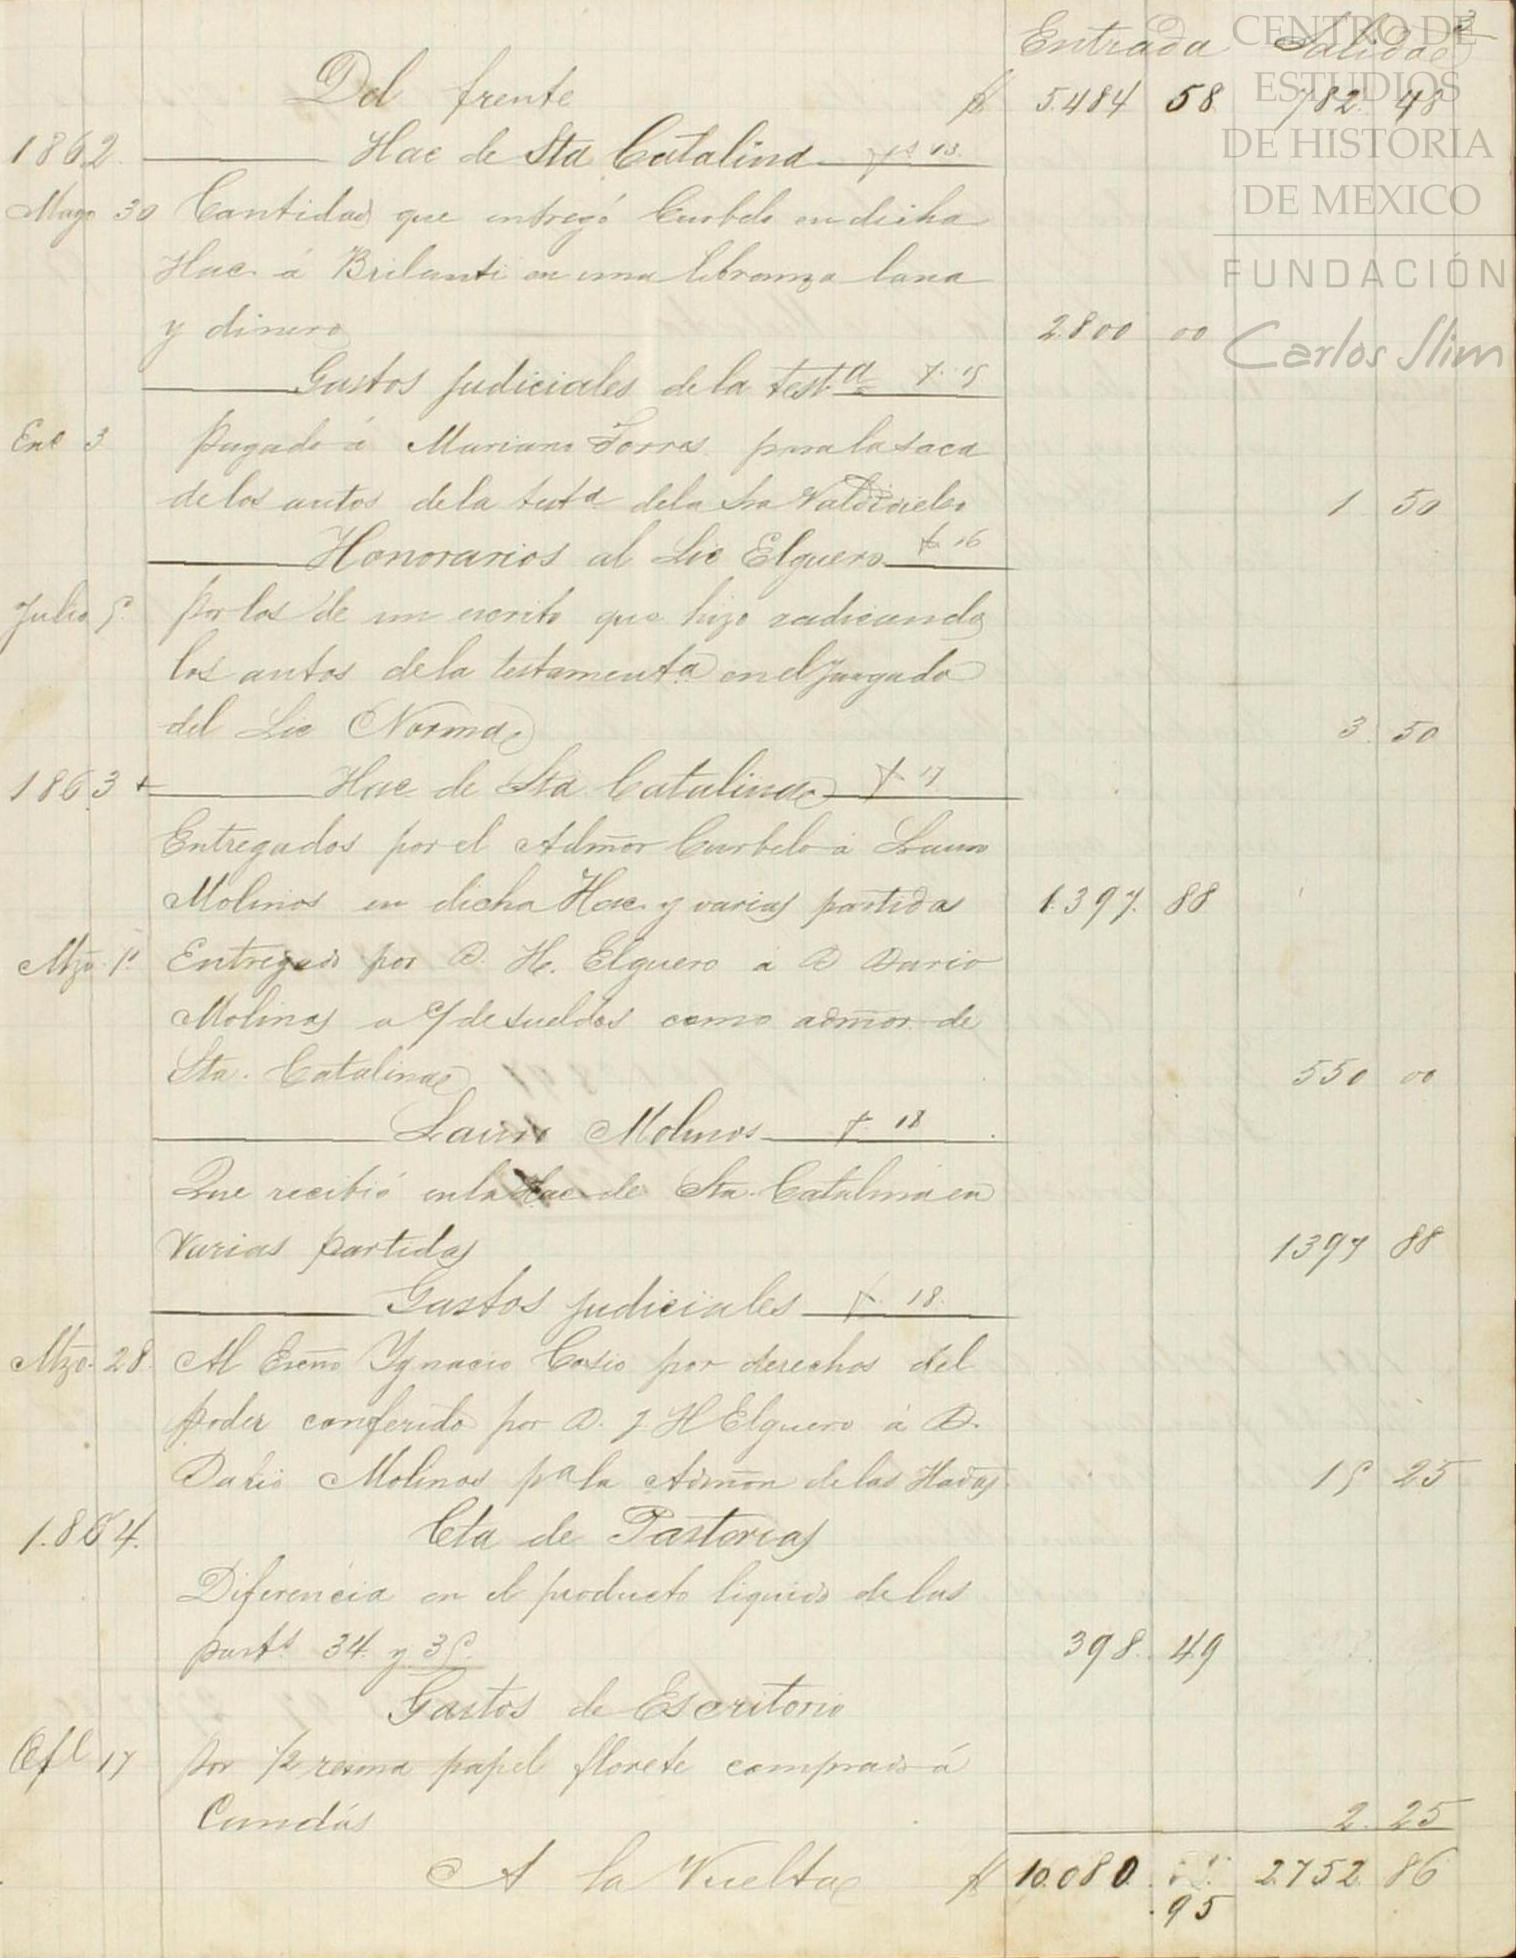 3
Entrada Salida
Del frente $ 5.484 58 782. 48
1862. Hac de Sta Catalina fs 13.
Mayo 30 Cantidad que entregó Curbelo en dicha
Hac. á Brilanti en una libranza lana
y dinero 2.800 00
Gastos judiciales de la testª f. 15
Enº 3 Pagado á Mariano Torres para la saca
de los autos de la testª de la Sra Valdivielso 1 50
Honorarios al Lic Elguero f. 16
Julio 5. Por los de un escrito que hizo radicando
los autos de la testamentª en el Juzgado
del Lic Norma 3. 50
1863 + Hac. de Sta Catalina f 17
Entregados por el Admor Curbelo á Lauro
Molinos en dicha Hac. y varias partidas 1.397. 88
Mzo. 1º Entregado por D. H. Elguero á D Dario
Molinos a c/ de sueldos como admor. de
Sta. Catalina 550 00
Lauro Molinos f 18
Que recibió en la Hac de Sta. Catalina en
varias partidas 1397 88
Gastos judiciales f. 18.
Mzo. 28. Al Escño Ygnacio Cosio por derechos del
poder conferido por D. J H Elguero á D.
Dario Molinos pª la Admon de las Hadas 15 25
1.864. Cta de Pastorias
Diferencia en el producto liquido de las
parts 34. y 35. 398. 49
Gastos de Escritorio
17 Por 1/2 resma papel florete comprado á
Candás 2. 25
A la Vuelta $ 10.080. 2.752. 86
.95
CENTRO DE
ESTUDIOS
DE HISTORIA
DE MEXICO
FUNDACIÓN
Carlos Slim